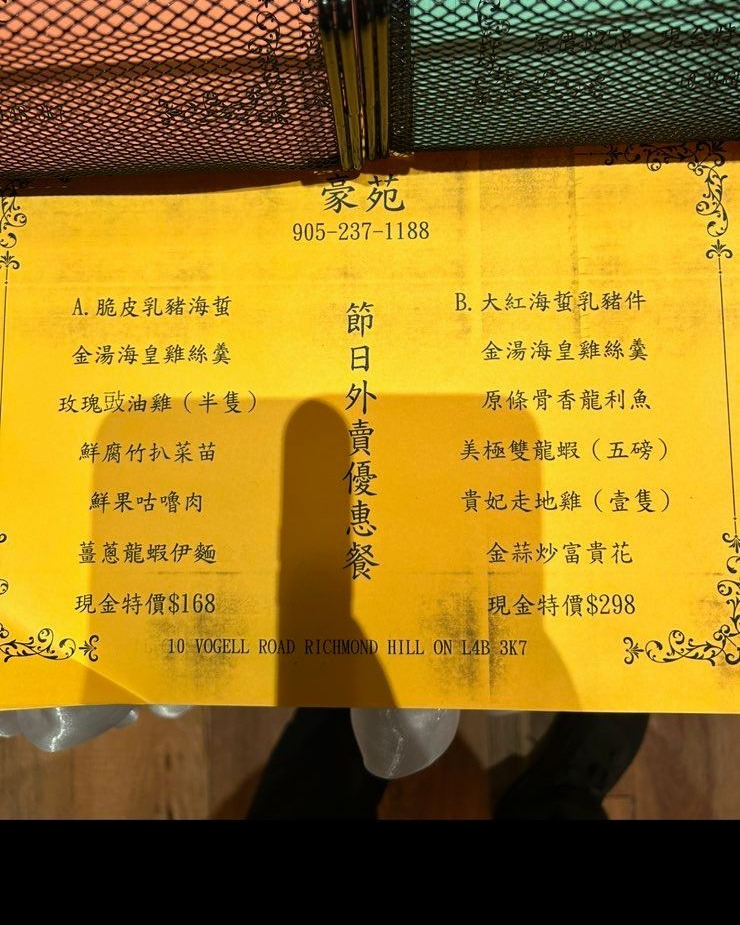 豪苑
905-237-1188
節日外賣優惠餐
A.脆皮乳豬海蜇
金湯海皇雞絲羹
玫瑰豉油雞（半隻）
鮮腐竹扒菜苗
鮮果咕嚕肉
薑蔥龍蝦伊麵
現金特價$168
B.大紅海蜇乳豬件
金湯海皇雞絲羹
原條骨香龍利魚
美極雙龍蝦（五磅）
貴妃走地雞（壹隻）
金蒜炒富貴花
現金特價$298
10 VOGELL ROAD RICHMOND HILL ON L4B 3K7